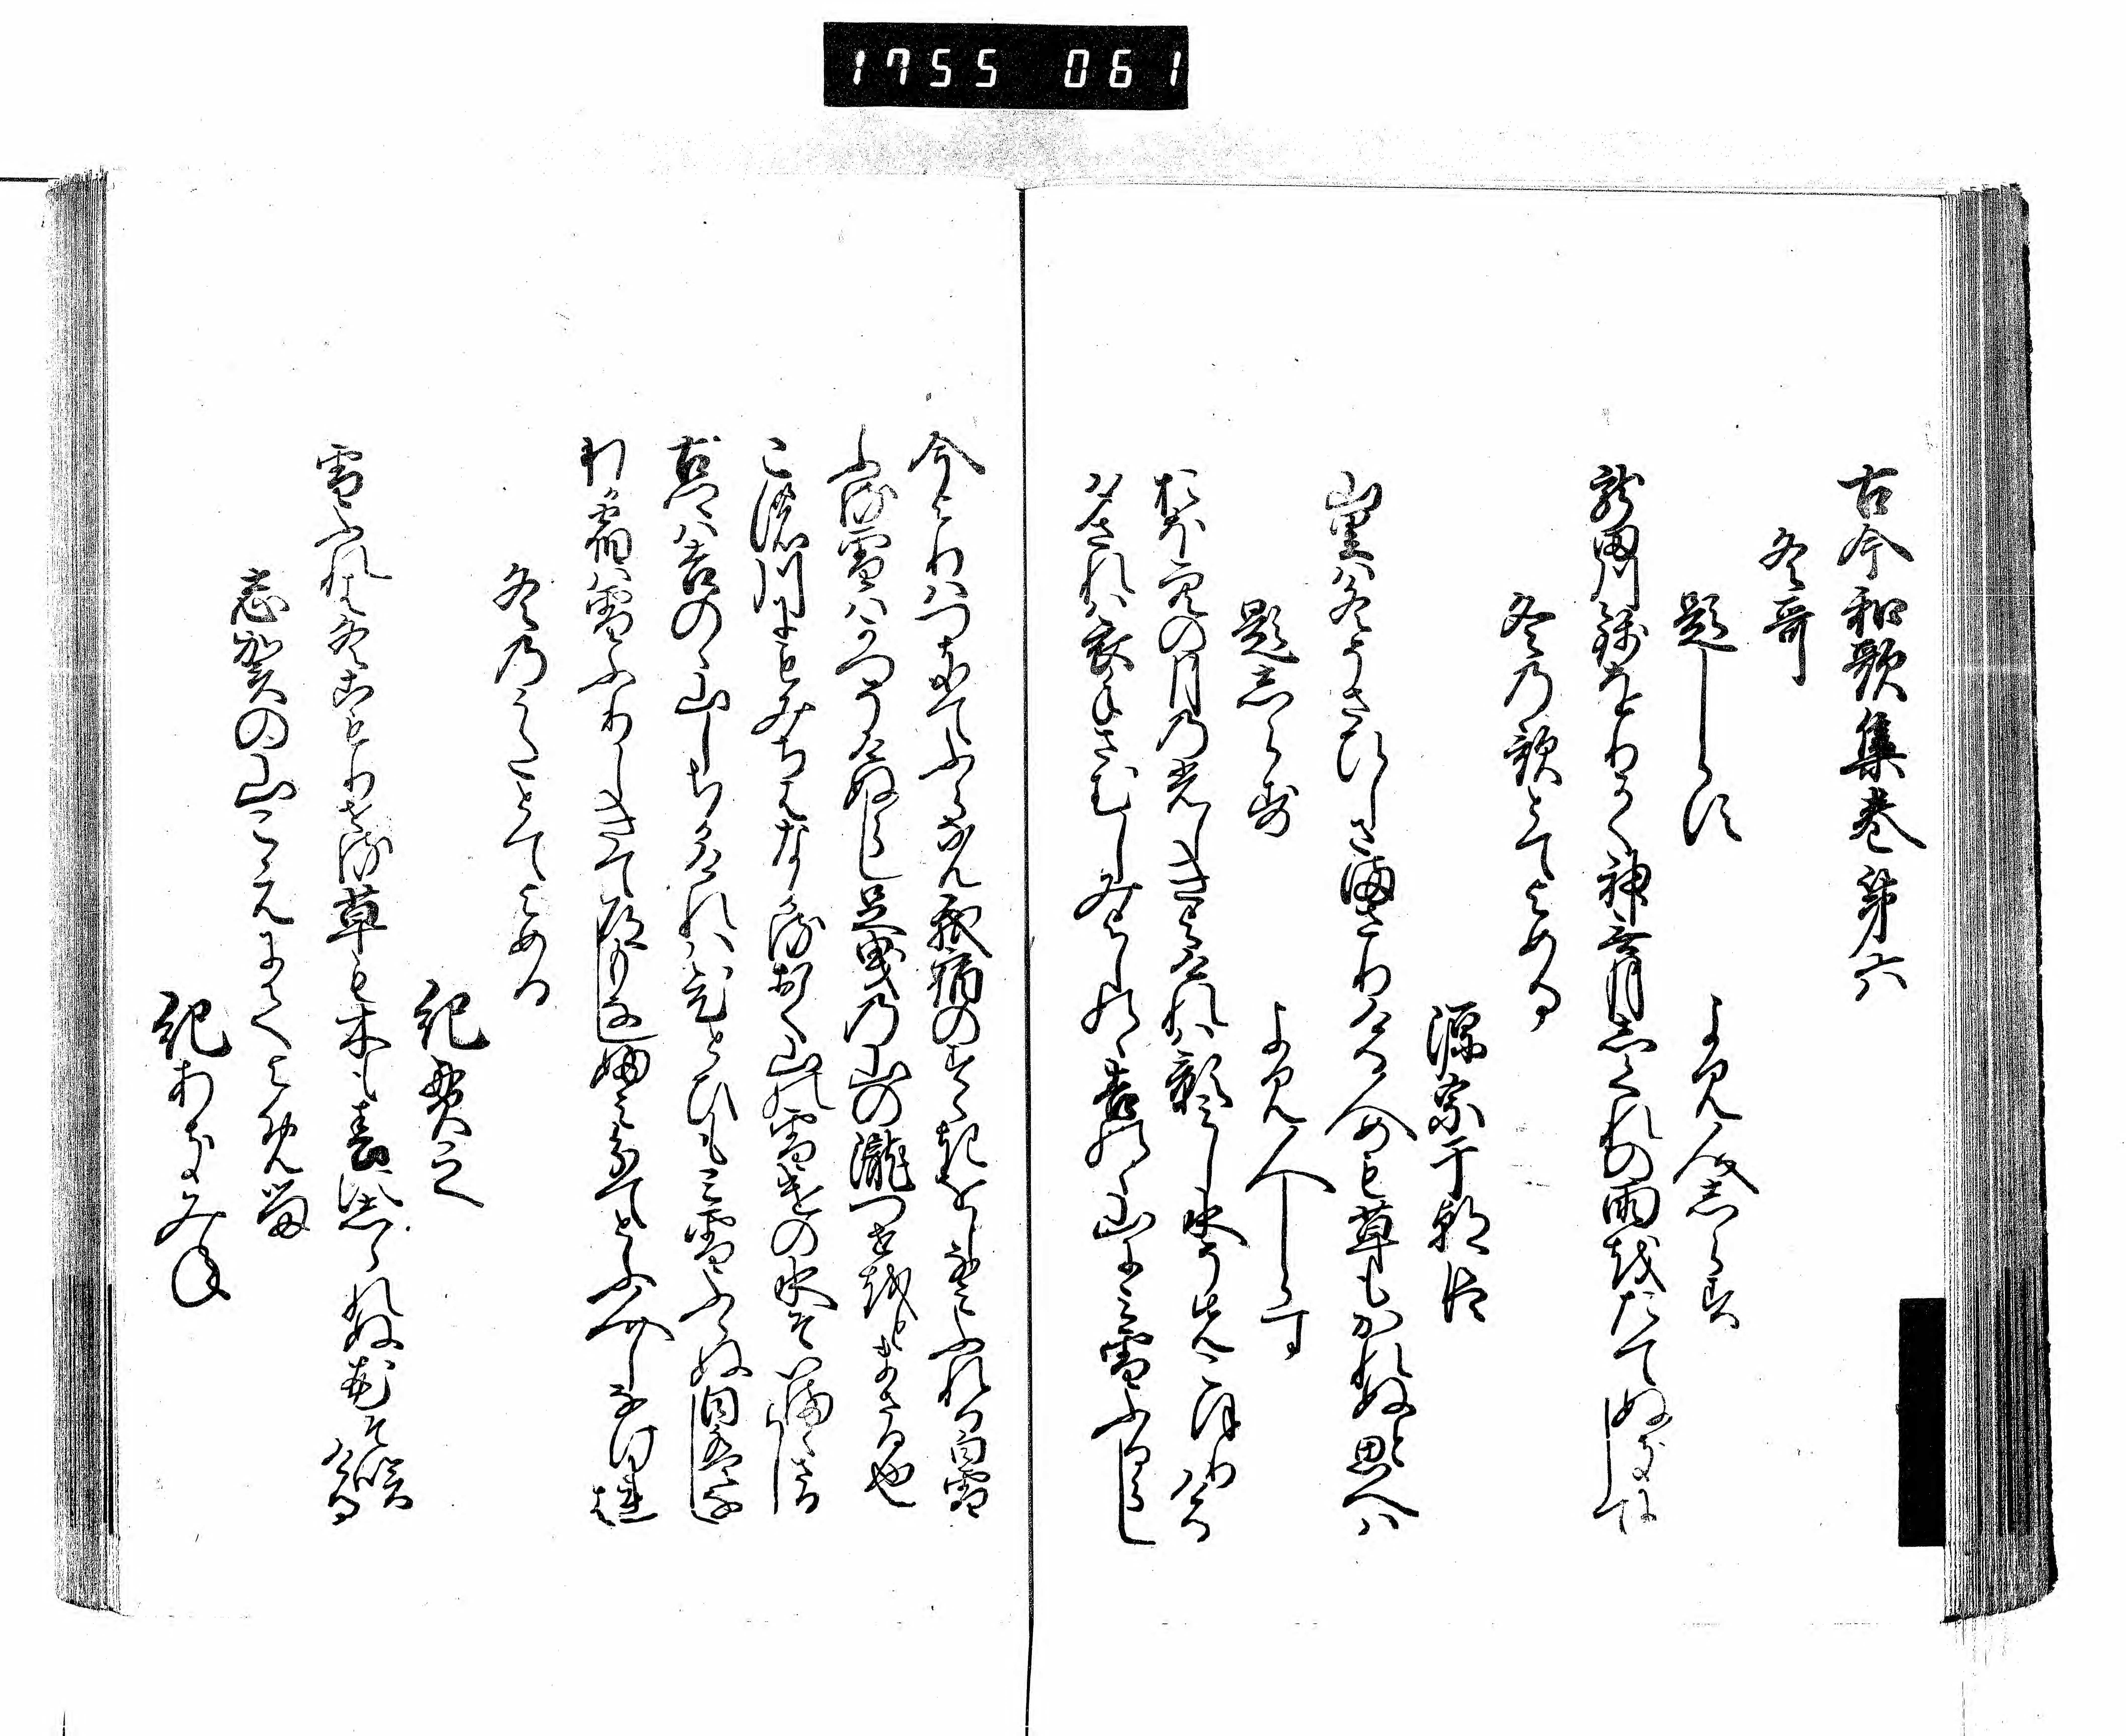 1755 061
古今和歌集巻第六
冬哥
題しらす
よみ人しらす
龍田川錦をりかく神無月しくれの雨をたてぬきにして
冬乃歌とてよめる
源宗于朝臣
山里は冬そさひしさまさりける人めも草もかれぬと思へは
題しらす
よみ人しらす
おほ空の月乃光しきよけれは影みし水そ先こほりける
夕されは衣手さむしみよしのゝ吉のゝ山にみ雪ふるらし
今よりはつきてふらなん我宿のすゝきをしなみふれる白雪
ふる雪はかつそけぬらし足曳乃山の瀧つせ音まさる也
この川にもみちはなかるおく山の雪けの水そいまゝさるらし
古郷は吉のゝ山しちかけれは一日もみ雪ふらぬ日はなし
わか宿は雪ふりしきて道もなしふみわけてとふ人しなけれは
冬乃うたとてよめる
紀貫之
雪ふれは冬こもりせる草も木も春にしられぬ花そ咲ける
志賀の山こえにてよめる
紀あきみね